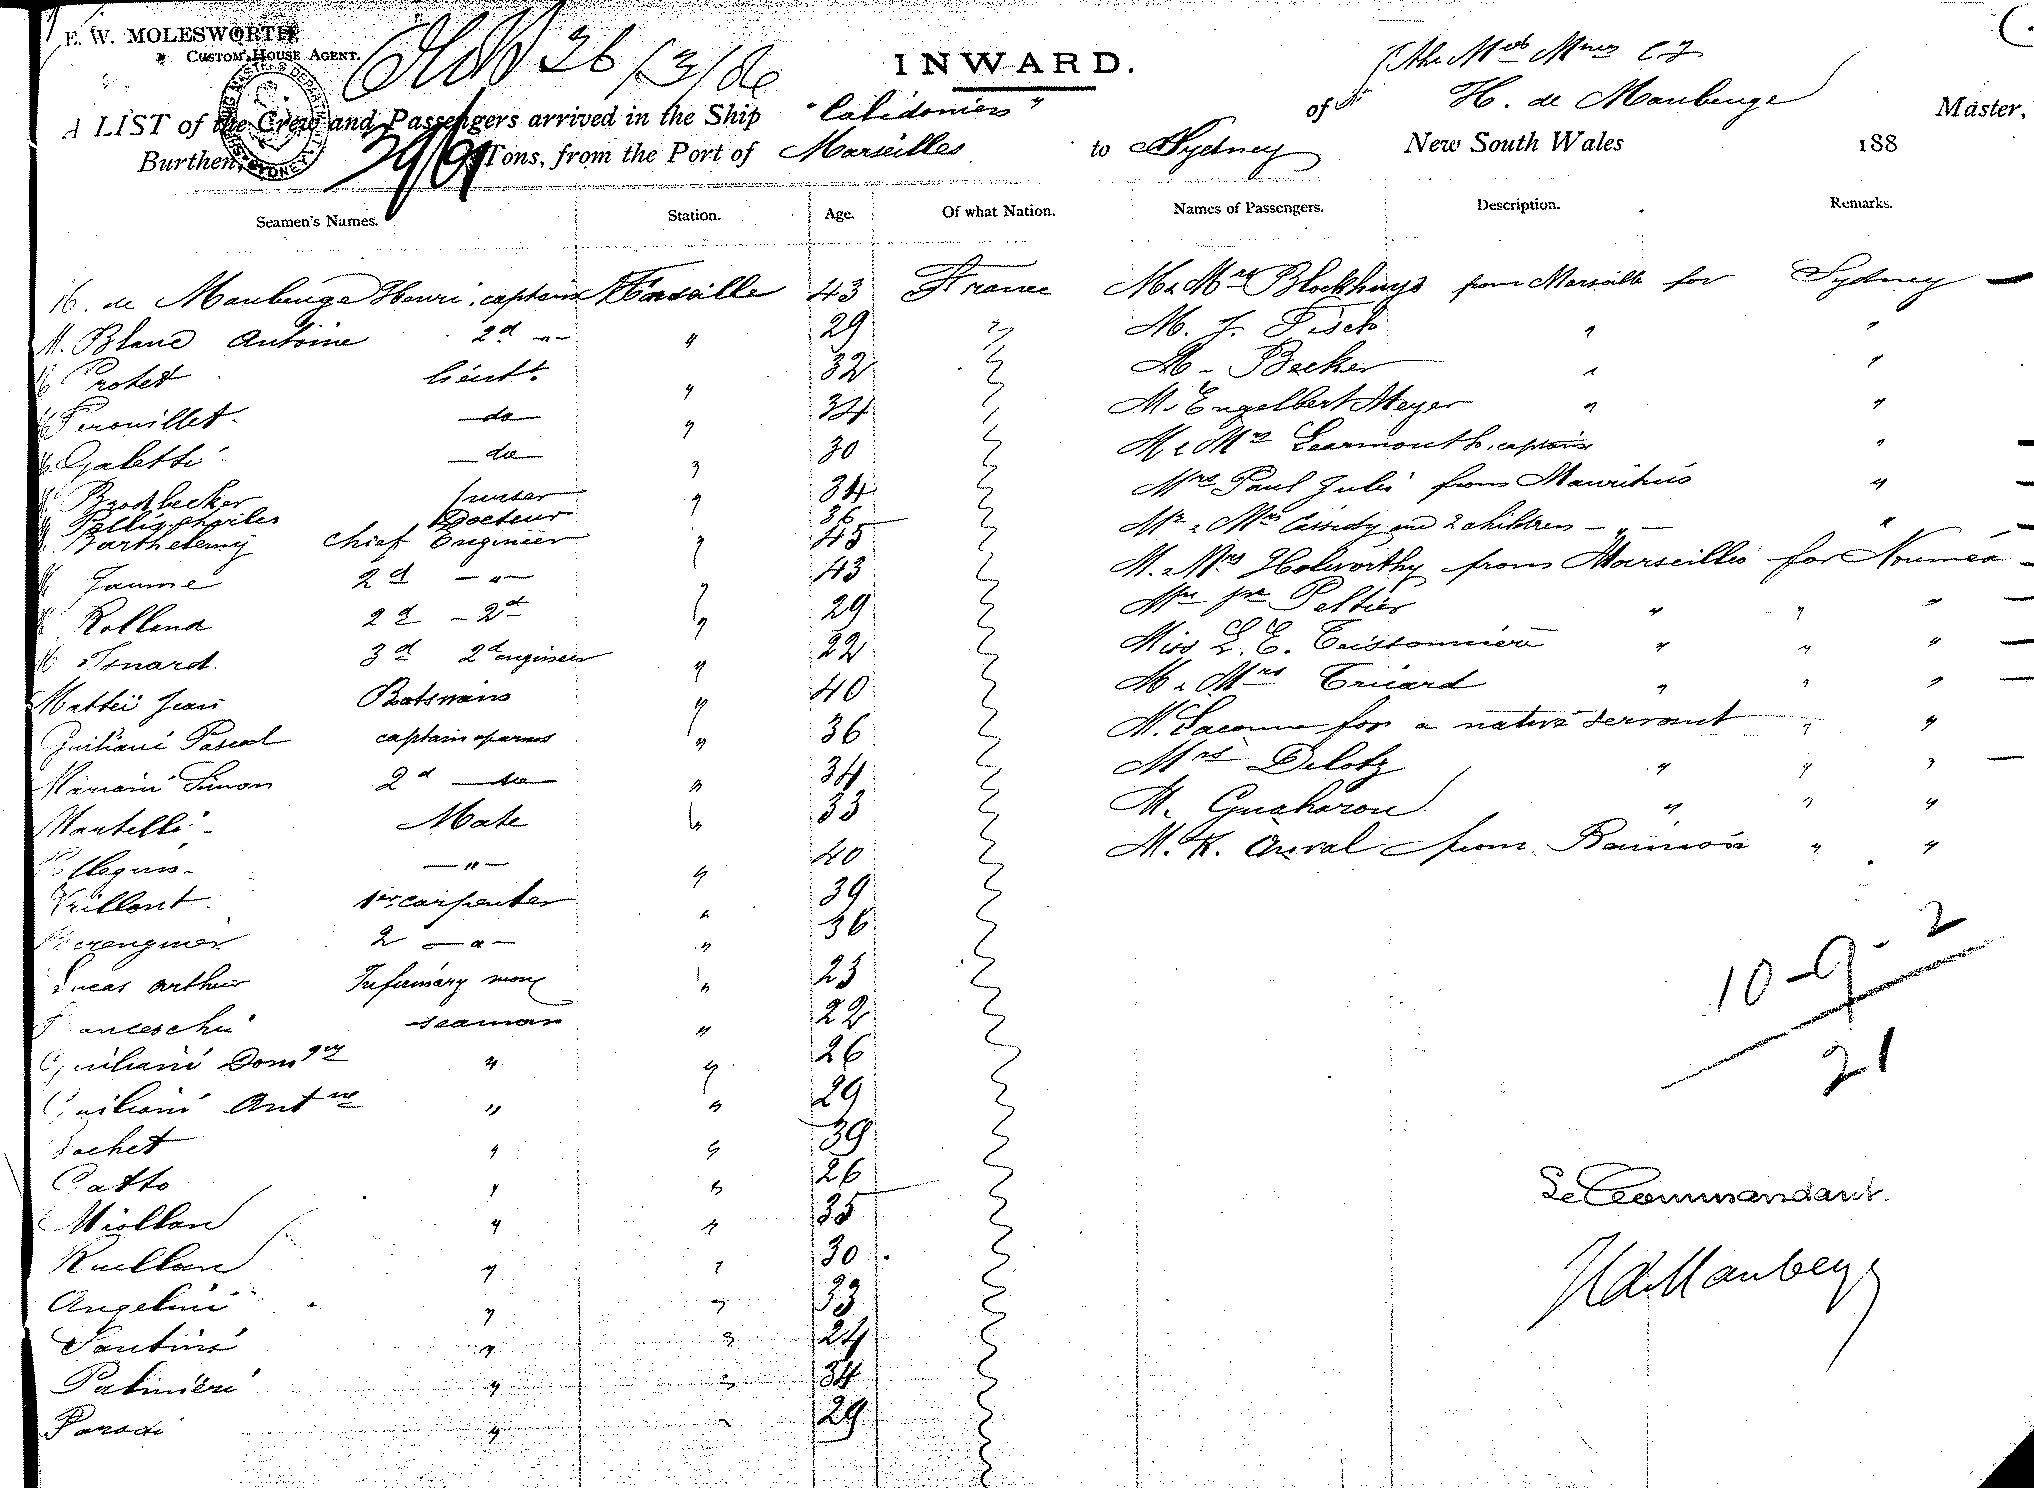 E. W. MOLESWORTH
CUSTOM HOUSE AGENT.
26/3/86
INWARD.
A LIST of the Crew and Passengers arrived in the Ship "Calédonien" of H. de Maubeuge Master,
Burthen, 3961 Tons, from the Port of Marseilles to Sydney New South Wales 188
Seamen's Names. Station. Age. Of what Nation. Names of Passengers. Description. Remarks.
H. de Maubeuge Henri, captain Marseille 43 France M & Mrs Blockhuys from Marseille for Sydney
M. Blanc Antoine 2d " " 29 " M. J. Fisch " "
M Protet lieutt. " 32 M. Becker " "
M Perouillet do " 34 M. Engelbert Meyer " "
M Galetti do " 30 M & Mrs Learmonth, captain "
M Brodbecker purser " 34 Mrs Paul Jules from Mauritius "
M Charles Docteur 36 Mr & Mrs Cassidy and 2 children " "
M Barthelemy Chief Engineer " 45 M. & Mrs Holworthy from Marseilles for Nouméa
M Jaume 2d " " 43 Peltier " " "
M Rolland 2d 2d " 29 Miss L. E. Teissonnière " " "
M Isnard. 3d 2d engineer " 22 M & Mrs Tricard " " "
Mattei Jean Botswain " 40 M. Lacomme for a native servant " "
Giuliani Pascal captain of arms " 36 Mrs Delotz " " "
Mariani Simon 2d do " 34 M. Gnaharou " " "
Mantelli Mate " 33 M. K. from Réunion " "
Pellegrin " " 40
Vaillant 1er carpenter " 39
Berenguier 2 " " 36
Lucas Arthur Infirmary man " 23
Franceschi seaman " 22
Giuliani Domque " " 26
Giuliani Antne " " 29
Cachet " " 39
Catto " " 26
Miollan " " 35
Ruellan " " 30
Angelini " " 33
Santini " " 24
Palmieri " " 34
Parodi " " 29
10-9-2
21
Le Commandant.
HdeMaubeuge